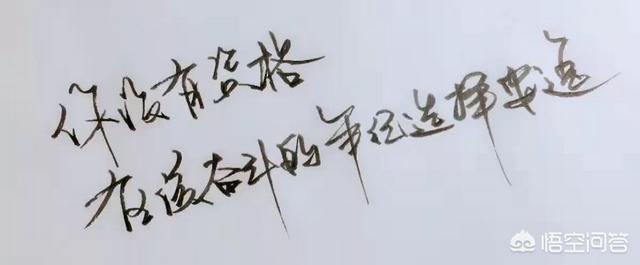 你没有资格
在该奋斗的年纪选择安逸
悟空问答